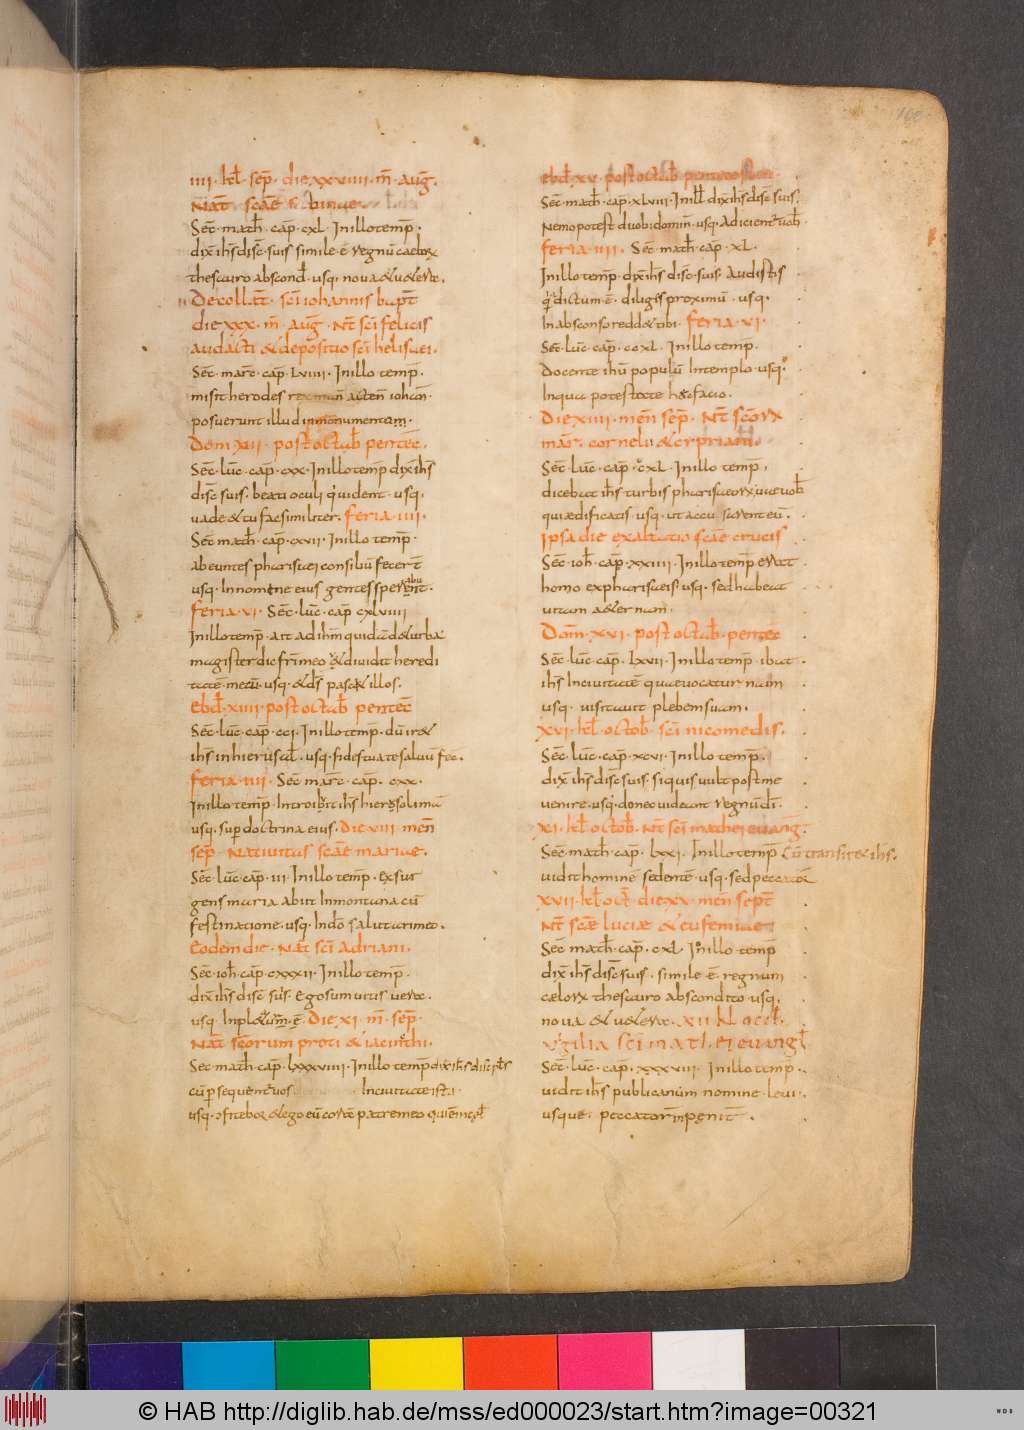 IIII · kł · sep̄ · die xxviiii · m̄ · auḡ ·
Nat̄ scāe
Sec̄ · math̄ · cap̄ · cxl · In illo temp̄ ·
dix̄ ih̄s disc̄ · suis simile · ē · regnū caeloꝝ
thesauro abscond̄ · usq · nova & uetera ·
Decollat̄ · sc̄i iohannis bapt̄
die xxx · m̄ · auḡ · Nt̄ sc̄i felicis
audacti & depositio sc̄i helisaei ·
Sec̄ · marc̄ · cap̄ · Lviiii · In illo temp̄ ·
misit herodes
posuerunt illud in monumentum ·
Dom̄ xiii · post octab̄ pentec̄ ·
Sec̄ · luc̄ · cap̄ · cxx · In illo temp̄ dix̄ ih̄s
disc̄ suis · beati oculi qui uident · usq ·
uade & tu fac similiter · feria · iiii ·
Sec̄ math̄ · cap̄ · cxvii · In illo temp̄ ·
abeuntes pharisaei consiliū fecer̄t
usq · In nomine eius gentes sperabunt ·
feria · vi · Sec̄ · luc̄ · cap̄ cxlviiii
In illo temp̄ · ait ad ih̄m quidā de turba
magister dic fr̄i meo ut diuidat heredi
tatē mecū · usq · & d̄s pascit illos ·
ebd̄ · xiiii · post octab̄ pentec̄
Sec̄ · luc̄ · cap̄ · cci · In illo temp̄ · dū ir&
ih̄s in hierusal̄ · usq · fides tua te saluū fec̄ ·
feria · iiii · Sec̄ marc̄ · cap̄ · cxx ·
In illo temp̄ · Introibit ih̄s hierosolima
usq · sup doctrina eius · Die viii · men̄
sep̄ · Nativitas scāe mariae ·
Sec̄ · luc̄ · cap̄ · iii · In illo temp̄ · exsur
gens maria abiit In montana cū
festinatione · usq · In dō salutari meo ·
Eodem die · Nat̄ sc̄i Adriani ·
Sec̄ · ioh̄ · cap̄ · cxxxii · In illo temp̄ ·
dix̄ ih̄s disc̄ suis · Ego sum uitis uera ·
usq · Die xi · m̄ · sep̄ ·
Nat̄ sc̄orum proti & iacinthi ·
Sec̄ · math̄ · cap̄ · Lxxxviiii · In illo temp̄ dix̄ ih̄s discip̄s
cū p sequentr̄ uos In ciuitate ista ·
usq · & ego eū corā patre meo qui ē In cęł
ebd̄ · xv · post octab̄ pentecosten
Sec̄ · math̄ · cap̄ · xlviii · In ill̄ · dix̄ ih̄s disc̄ suis ·
Nemo potest duob · domin̄ · usq · Adicientr̄ uob̄
feria · iiii · Sec̄ math̄ · cap̄ · xl ·
In illo temp̄ · dix̄ ih̄s disc̄ · suis · Audistis
qa dictum · ē · diliges proximū · usq ·
In absconso redd& tibi · feria · vi ·
Sec̄ · luc̄ · cap̄ · ccxl · In illo temp̄ ·
Docente ihū populū In templo · usq ·
In qua potestate haec facio ·
Die xiiii · men̄ sep̄ · Nt̄ sc̄oꝝ
mar̄ · cornelii & cypriani ·
Sec̄ · luc̄ · cap̄ · cxl · In illo temp̄ ·
dicebat ih̄s turbis pharisaeoꝝ uae uob̄
qui aedificatis · usq · ut accusarent eū ·
Ipsa die exaltatio scāe crucis
Sec̄ · ioh̄ · cap̄ · xxiiii · In illo temp̄ erat
homo ex pharisaeis · usq · sed habeat
uitam aeternam ·
Dom̄ · xvi · post octab̄ · pentec̄
Sec̄ · luc̄ · cap̄ · Lxvii · In illo temp̄ · ibat ·
ih̄s In ciuitatē quae uocatur naim
usq · uisitauit plebem suam ·
xvi · kł · octob̄ · sc̄i nicomedis ·
Sec̄ · luc̄ · cap̄ · xcvi · In illo temp̄ ·
dix̄ ih̄s disc̄ suis · si quis uult post me
uenire · usq · donec uideant regnū dī ·
xi · kł · octob̄ · Nt̄ sc̄i mathei euanḡ ·
Sec̄ · math̄ · cap̄ · Lxxi · In illo temp̄ Cū transir& ih̄s ·
uidit hominē sedentē · usq · sed peccatoꝝ
xvii · kł · oct̄ · die xv · men̄ sept̄
Nt̄ scāe luciae & eufemiae
Sec̄ math̄ · cap̄ · cxl In illo temp̄
dix̄ ih̄s disc̄ suis · simile · ē · regnum
caeloꝝ thesauro abscondito · usq ·
noua & uetera · xii kł octb̄ ·
Vigilia sc̄i matħei euangł
Sec̄ · luc̄ · cap̄ · xxxxviii · In illo temp̄ ·
uidit ih̄s publicanum nomine · leui ·
usque · peccatores
© HAB http://diglib.hab.de/mss/ed000023/start.htm?image=00321